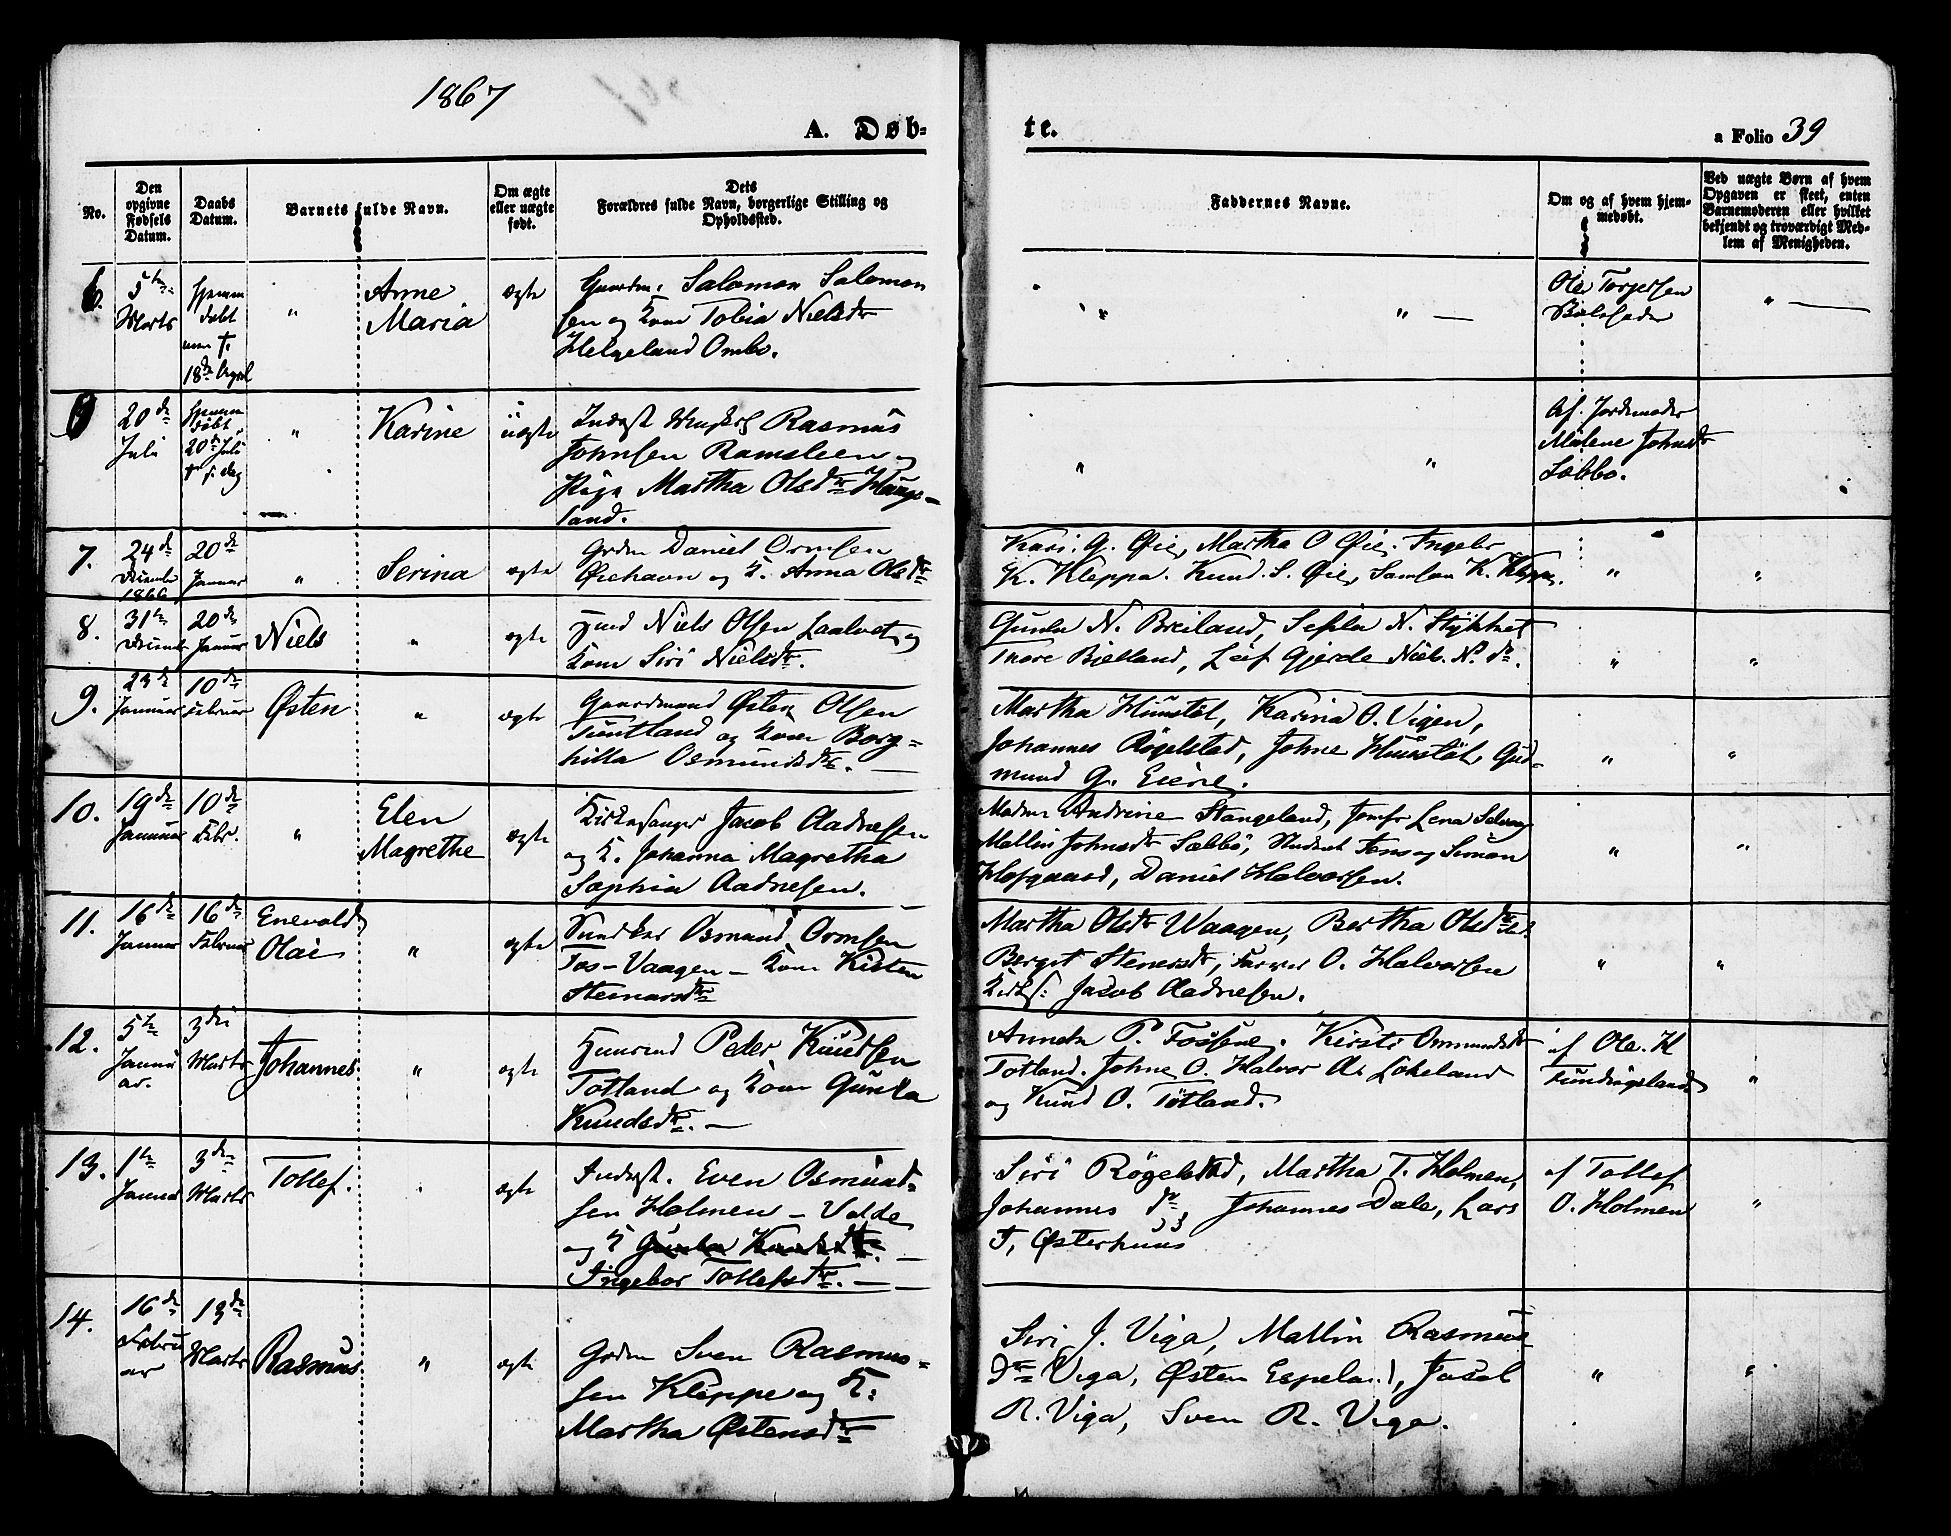 1867
A. Døb-
te.
a Folio 39
No.
Den opgivne Fødsels Datum.
Daabs Datum.
Barnets fulde Navn.
Om ægte eller uægte født.
Dets Forældres fulde Navn, borgerlige Stilling og Opholdssted.
Faddernes Navne.
Om og af hvem hjemmedøbt.
Ved uægte Børn af hvem Opgaven er skeet, enten Barnemoderen eller hvilket bekjendt og troværdigt Medlem af Menigheden.
6. 5te Marts
Hjemmedøbt
18de April
" Anne
Maria
ægte
Salomon Salomon
sen og Kone Tobia Nielsdr
Helgeland Ombo.
" " " —
Ole Torgersen
" —
20de Juli
Hjemmedøbt
20de Juli
" Karine
uægte
Rasmus
Johnsen Ramsleen og
Pige Martha Olsdtr Haugs-
land.
" "
Af Jordemoder
Malene Johnsdtr
Sæbbø.
7. 24de Decemb 1866
20de Januar
" Serina
ægte
Grdm Daniel Ormsen
Øiehavn og K. Anna Olsdtr
Kari G. Øie, Martha O Øie. Ingebr
K. Kleppa. Knud S. Øie, Samson K. Kleppa.
" "
8. 31te Decemb
20de Januar
Niels "
ægte
Niels Olsen Laalvet og
Kone Siri Nielsdtr.
Gunla N. Breiland, N.
Thore Bjelland, Leif Gjerde Niels N. do.
" "
9. Januar
10de Februar
Østen "
ægte
Gaardmand Østen Olsen
Tuntland og Kone Borg-
hilla Osmundsdtr. —
Martha Humstøl, Karina O. Vigen,
Johannes Røgelstad, Johne Humstøl, Gud-
mund G. Eiene.
" "
10. 19de Januar
10de Febr.
" Elen
Magrethe
ægte
Kirkesanger Jacob Aadnesen
og K. Johanna Magretha
Sophia Aadnesen.
Madm Andrine Stangeland, Jomfr Lena
Mallin Johnsdtr Sæbbø, Student Jens og Simon
Hofgaard, Daniel Halvorsen.
" "
11. 16de Januar
16de Februar
Enevold
Olai "
ægte
Osmund Ormsen
Tos-Vaagen – Kone Kisten
Steinarsdtr
Martha Olsdtr Waagen, Bertha Olsdtr
Berget Stenersdtr, O. Halvorsen
Kirkes: Jacob Aadnesen.
" "
12. 5te Januar
3die Marts
Johannes "
ægte
Peder Knudsen
Totland og Kone Gunla
Knudsdtr. —
P. Fossene. Kirsti Ommundsdtr
Totland. Johne O. Halvor A. Løkeland
og Knud O. Totland.
af Ole. H
"
13. 1te Januar
3die Marts
Tollef. "
ægte
Inderst. Even Osmund-
sen Holmen – Valde
og K
Ingebor Tollefsdtr. —
Siri Røgelstad, Martha T. Holmen,
Johannes do, Johannes Dale, Lars
T. Østerhuus
af Tollef
O. Holmen
"
14. 16de Februar
13de Marts
Rasmus "
ægte
Grdm Sven Rasmus-
sen Kleppe og K.
Martha Østensdtr
Siri J. Viga, Mallin Rasmus-
dtr Viga, Østen Espeland, Jacob
R. Viga, Sven R. Viga.
" "